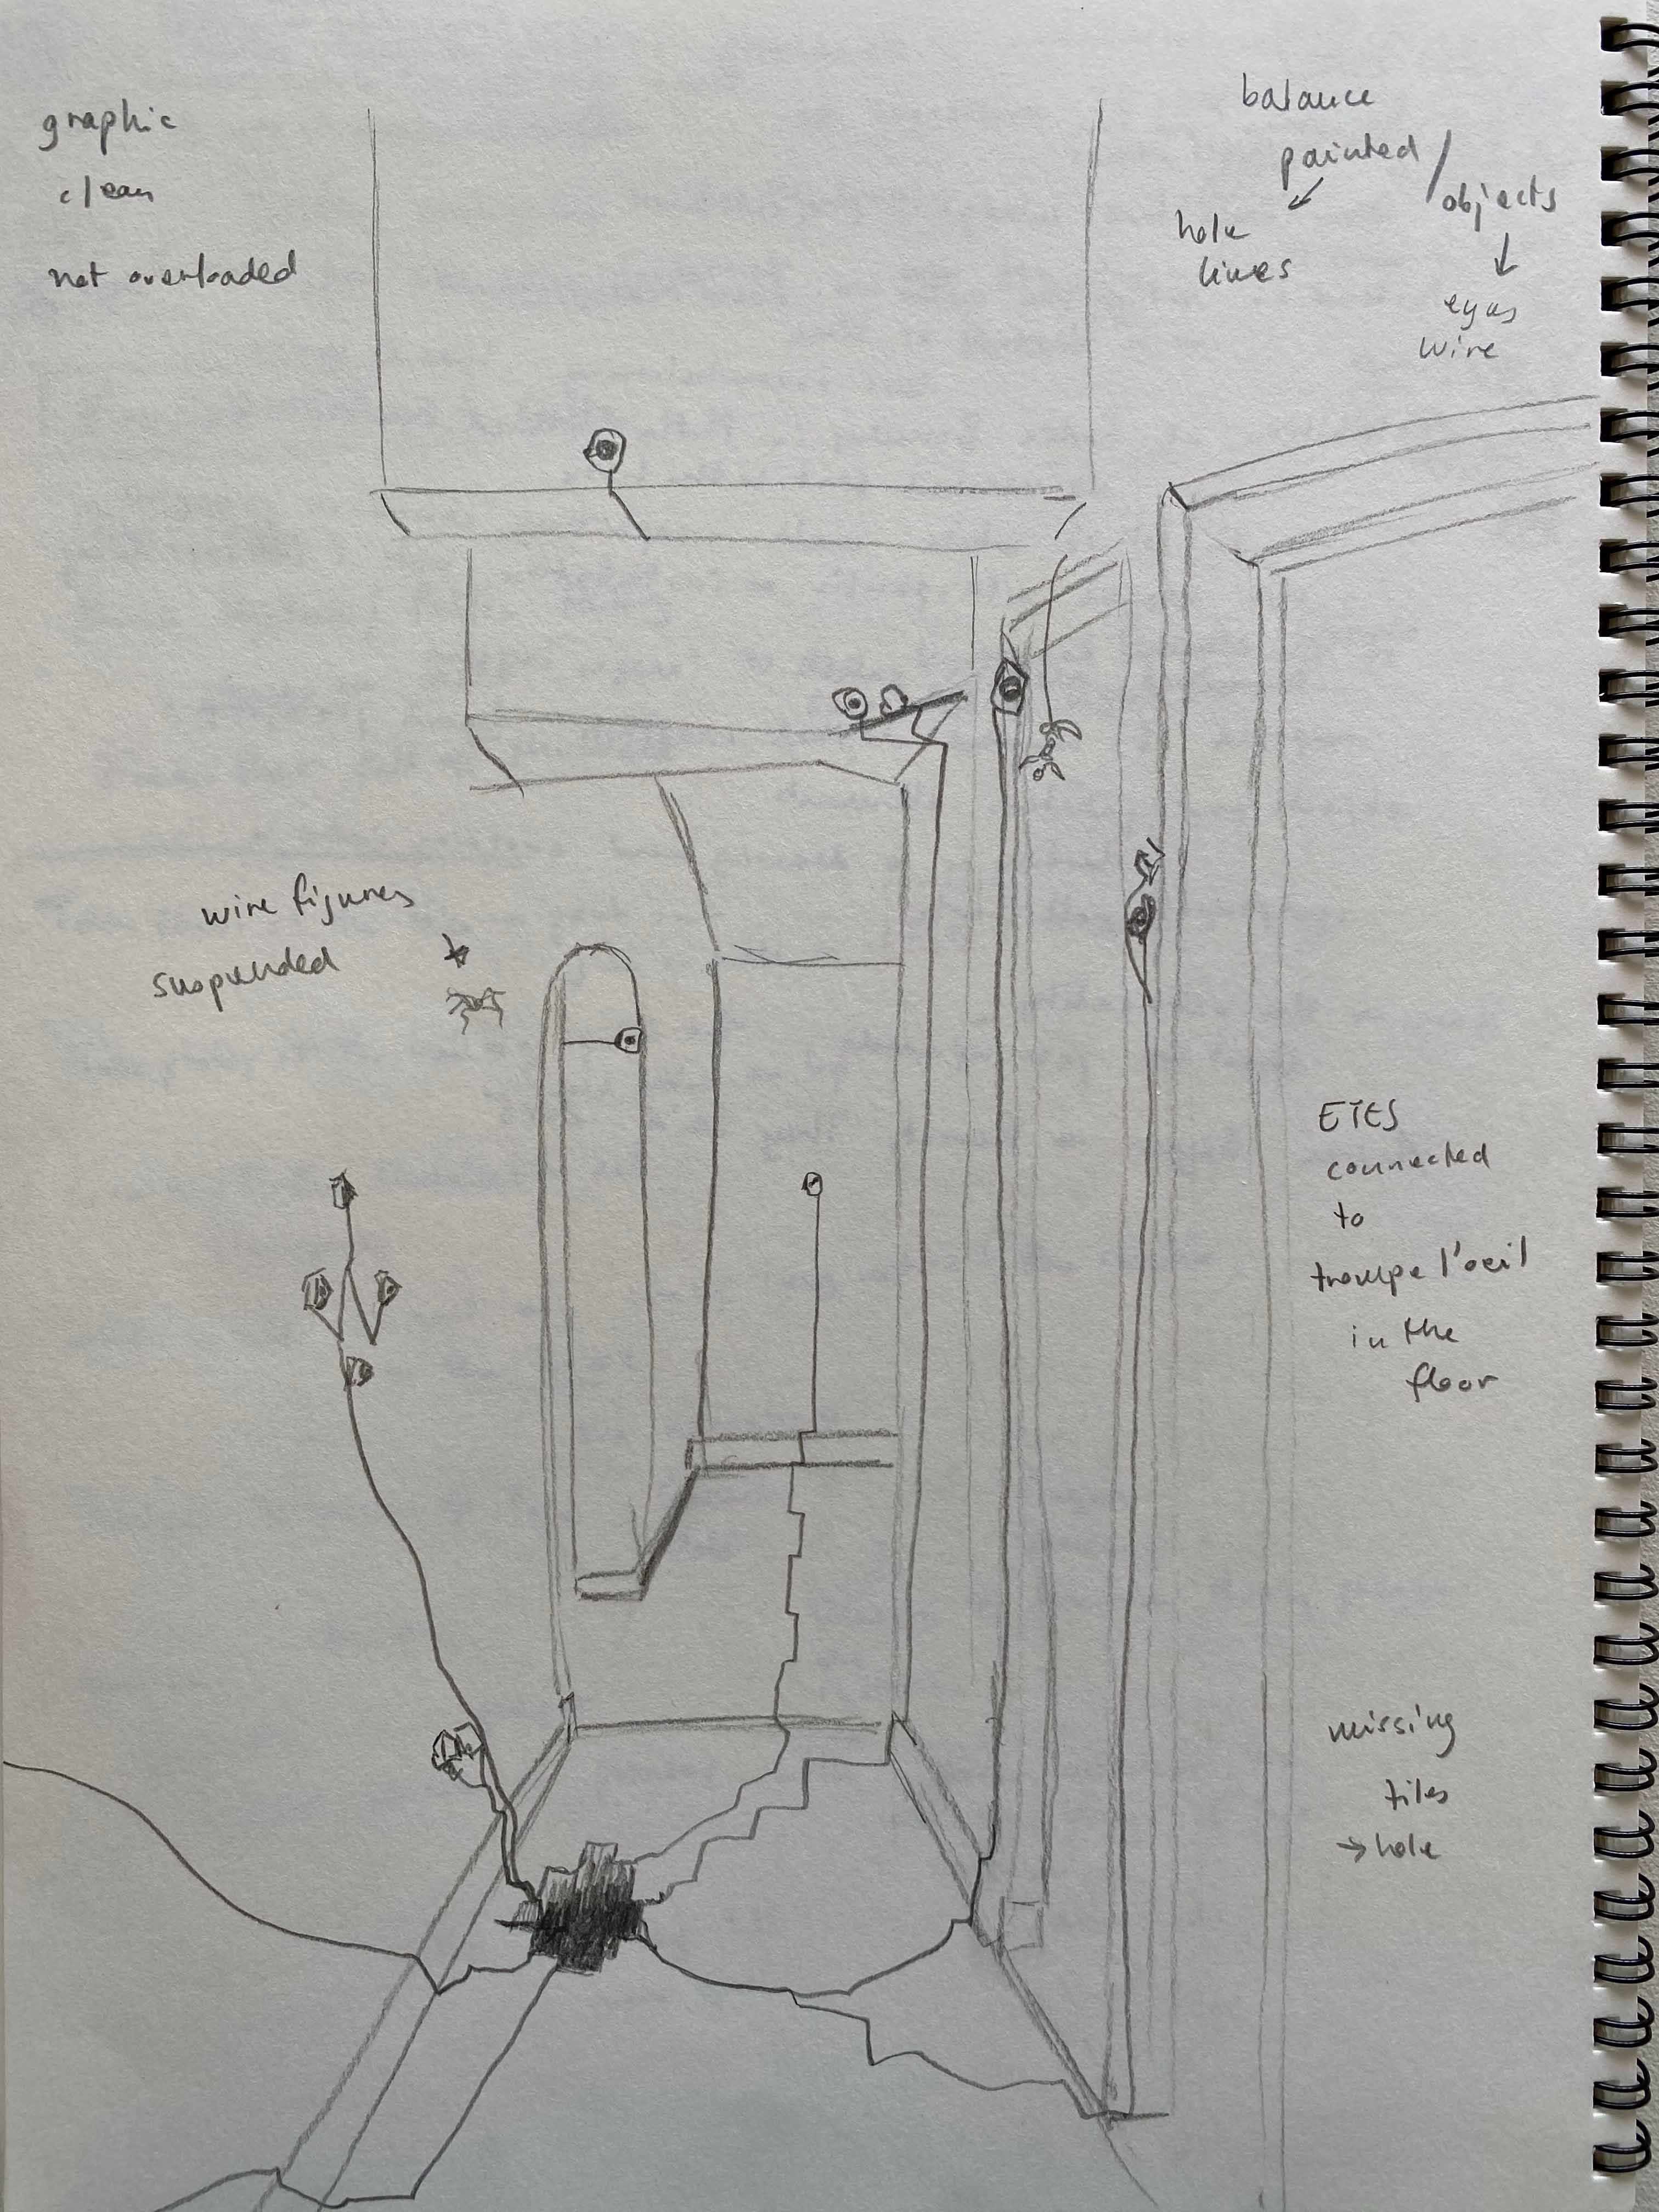 graphic
clean
not overloaded
balance
painted /
objects
hole
lines
eyes
wire
wire figures
suspended
EYES
connected
to
trompe l'oeil
in the
floor
missing
tiles
→ hole